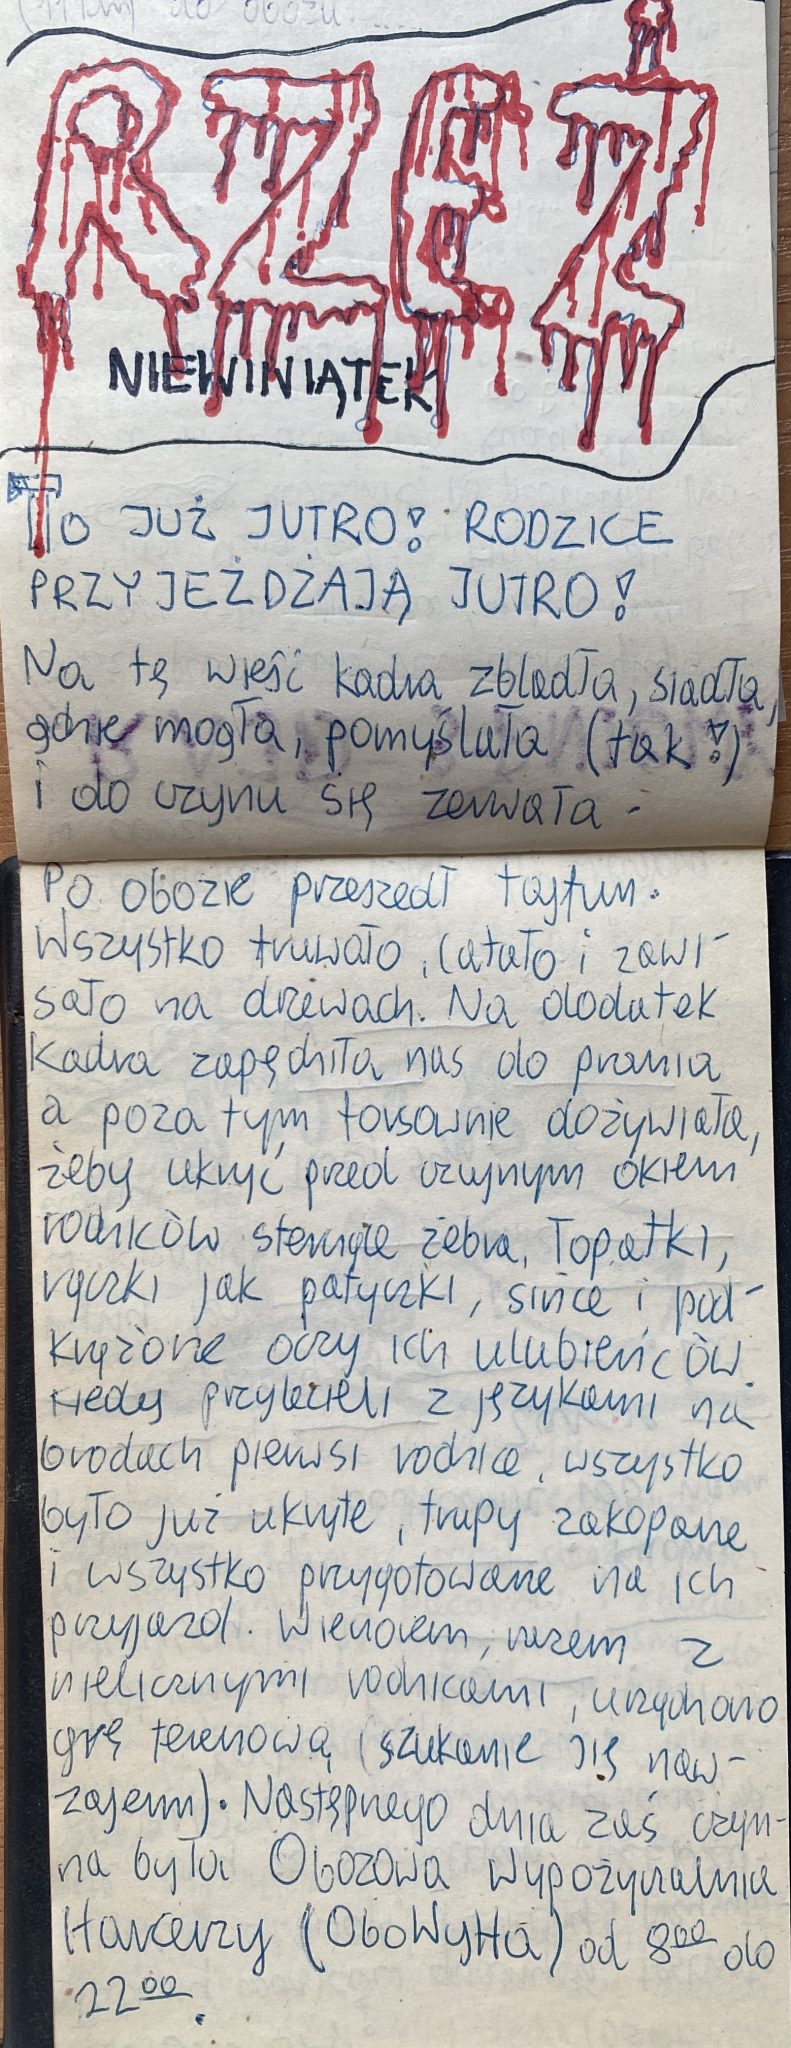 (11 km) do obozu......
RZEŹ
NIEWINIĄTEK
TO JUŻ JUTRO! RODZICE
PRZYJEŻDŻAJĄ JUTRO!
Na tę wieść kadra zbladła, siadła,
gdzie mogła, pomyślała (tak!)
i do czynu się zerwała -
Po obozie przeszedł tajfun.
Wszystko fruwało, latało i zawi-
sało na drzewach. Na dodatek
kadra zapędziła nas do prania
a poza tym forsownie dożywiała,
żeby ukryć przed czujnym okiem
rodziców sterczące żebra, łopatki,
rączki jak patyczki, sińce i pod-
krążone oczy ich ulubieńców.
Kiedy przybieżeli z językami na
brodach pierwsi rodzice, wszystko
było już ukryte, trupy zakopane
i wszystko przygotowane na ich
przyjazd. Wieczorem, razem z
nielicznymi rodzicami, urządzono
grę terenową (szukanie się naw-
zajem). Następnego dnia zaś czyn-
na była Obozowa Wypożyczalnia
Harcerzy (OboWyHa) od 8⁰⁰ do
22⁰⁰.